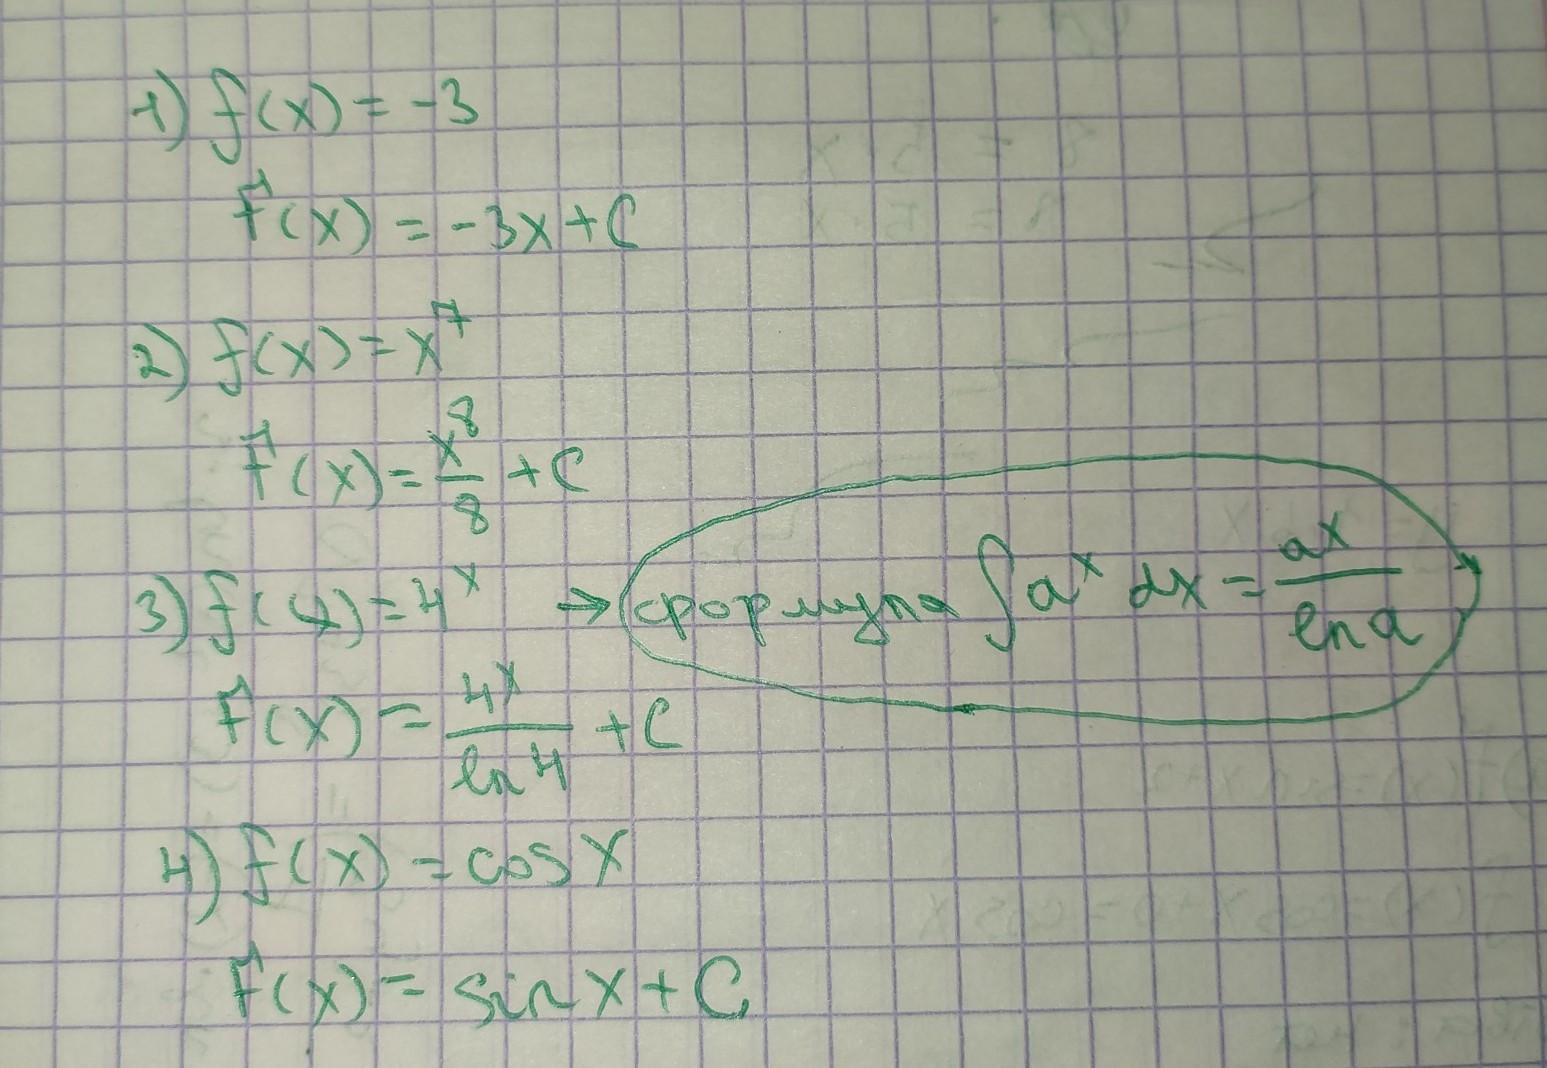 1) f(x) = -3
F(x) = -3x + C
2) f(x) = x^7
F(x) = x^8/8 + C
3) f(x) = 4^x → формула ∫a^x dx = a^x/ln a
F(x) = 4^x/ln 4 + C
4) f(x) = cos x
F(x) = sin x + C